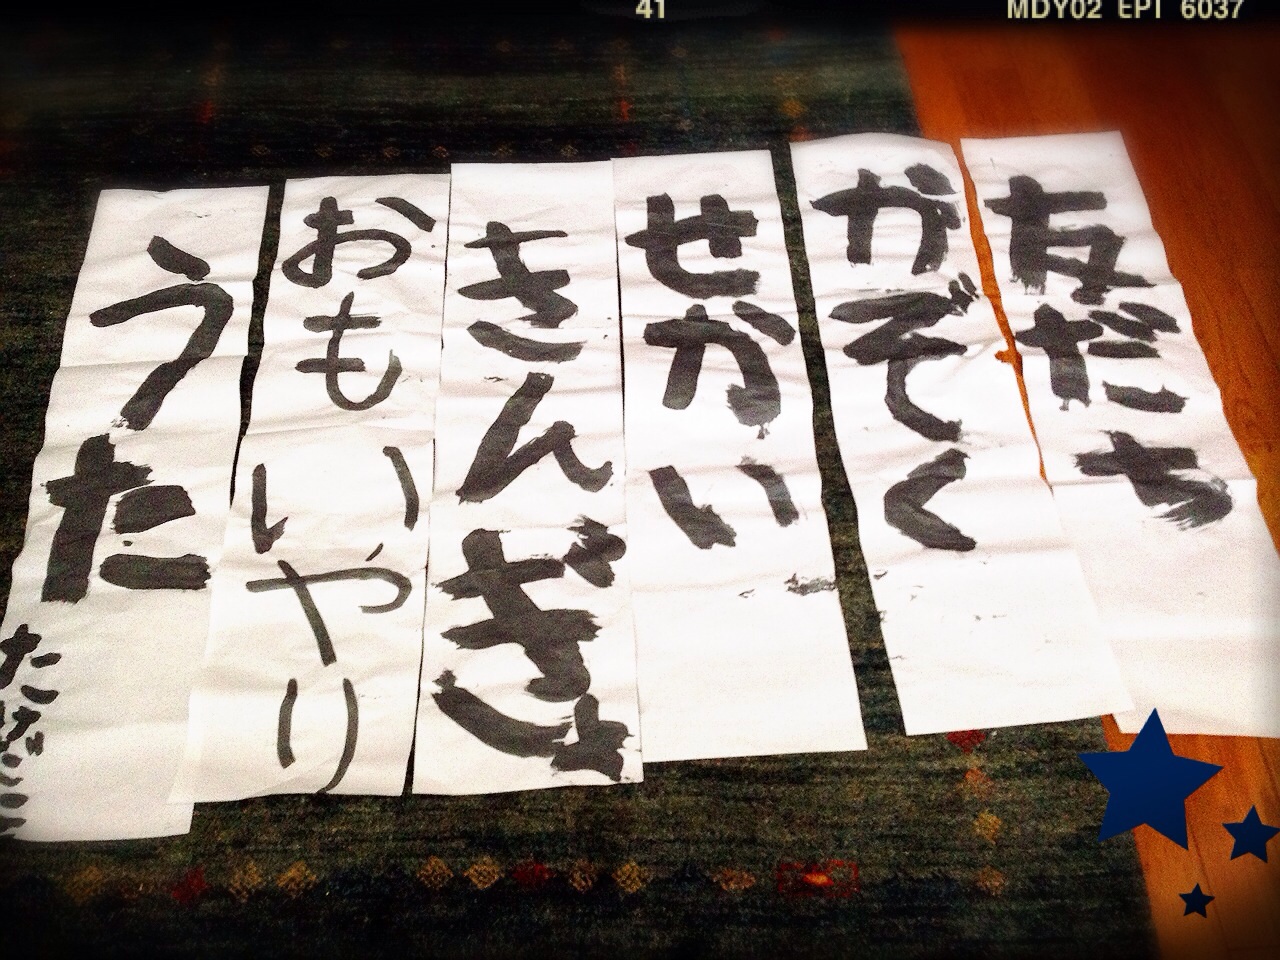 41
MDY02 EPT 6037
友だち
かぞく
せかい
きんぎょ
おもいやり
うた